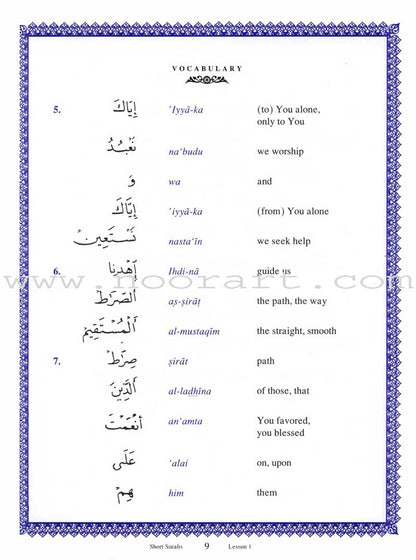 VOCABULARY
5. إِيَّاكَ 'Iyyā-ka (to) You alone,
only to You
نَعْبُدُ na'budu we worship
وَ wa and
إِيَّاكَ 'iyyā-ka (from) You alone
نَسْتَعِينُ nasta'īn we seek help
www.noorart.com
6. اِهْدِنَا Ihdi-nā guide us
الصِّرَاطَ aṣ-ṣirāṭ the path, the way
الْمُسْتَقِيمَ al-mustaqīm the straight, smooth
7. صِرَاطَ ṣirāt path
الَّذِينَ al-ladhīna of those, that
أَنْعَمْتَ an'amta You favored,
you blessed
عَلَى 'alai on, upon
هِمْ him them
Short Surahs 9 Lesson 1